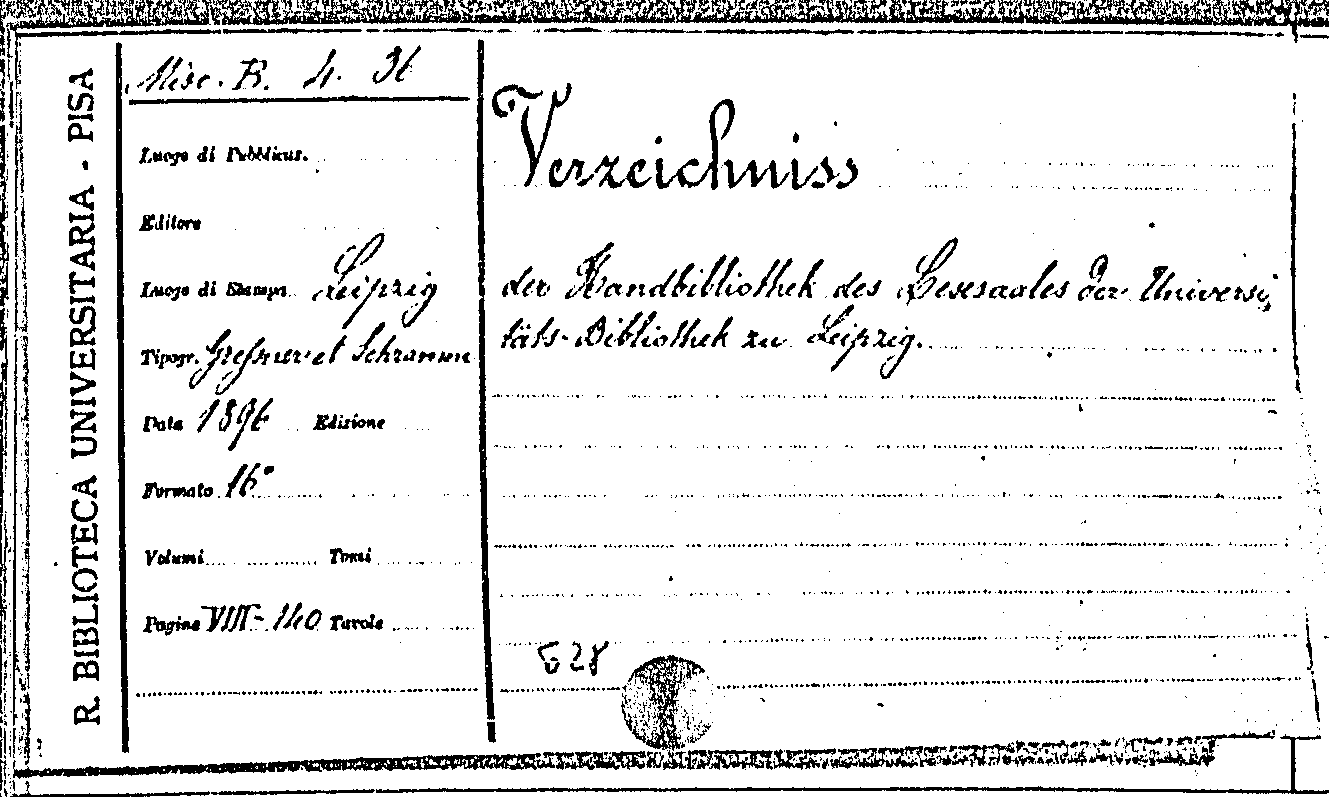 R. BIBLIOTECA UNIVERSITARIA - PISA
Misc. B. 4. 36
Luogo di Pubblicaz.
Editore
Luogo di Stampa Leipzig
Tipogr. Gressner et Schramm
Data 1896 Edizione
Formato 16°
Volumi Tomi
Pagine VIII-140 Tavole
Verzeichniss
der Handbibliothek des Lesesaales der Universi
täts-Bibliothek zu Leipzig.
628